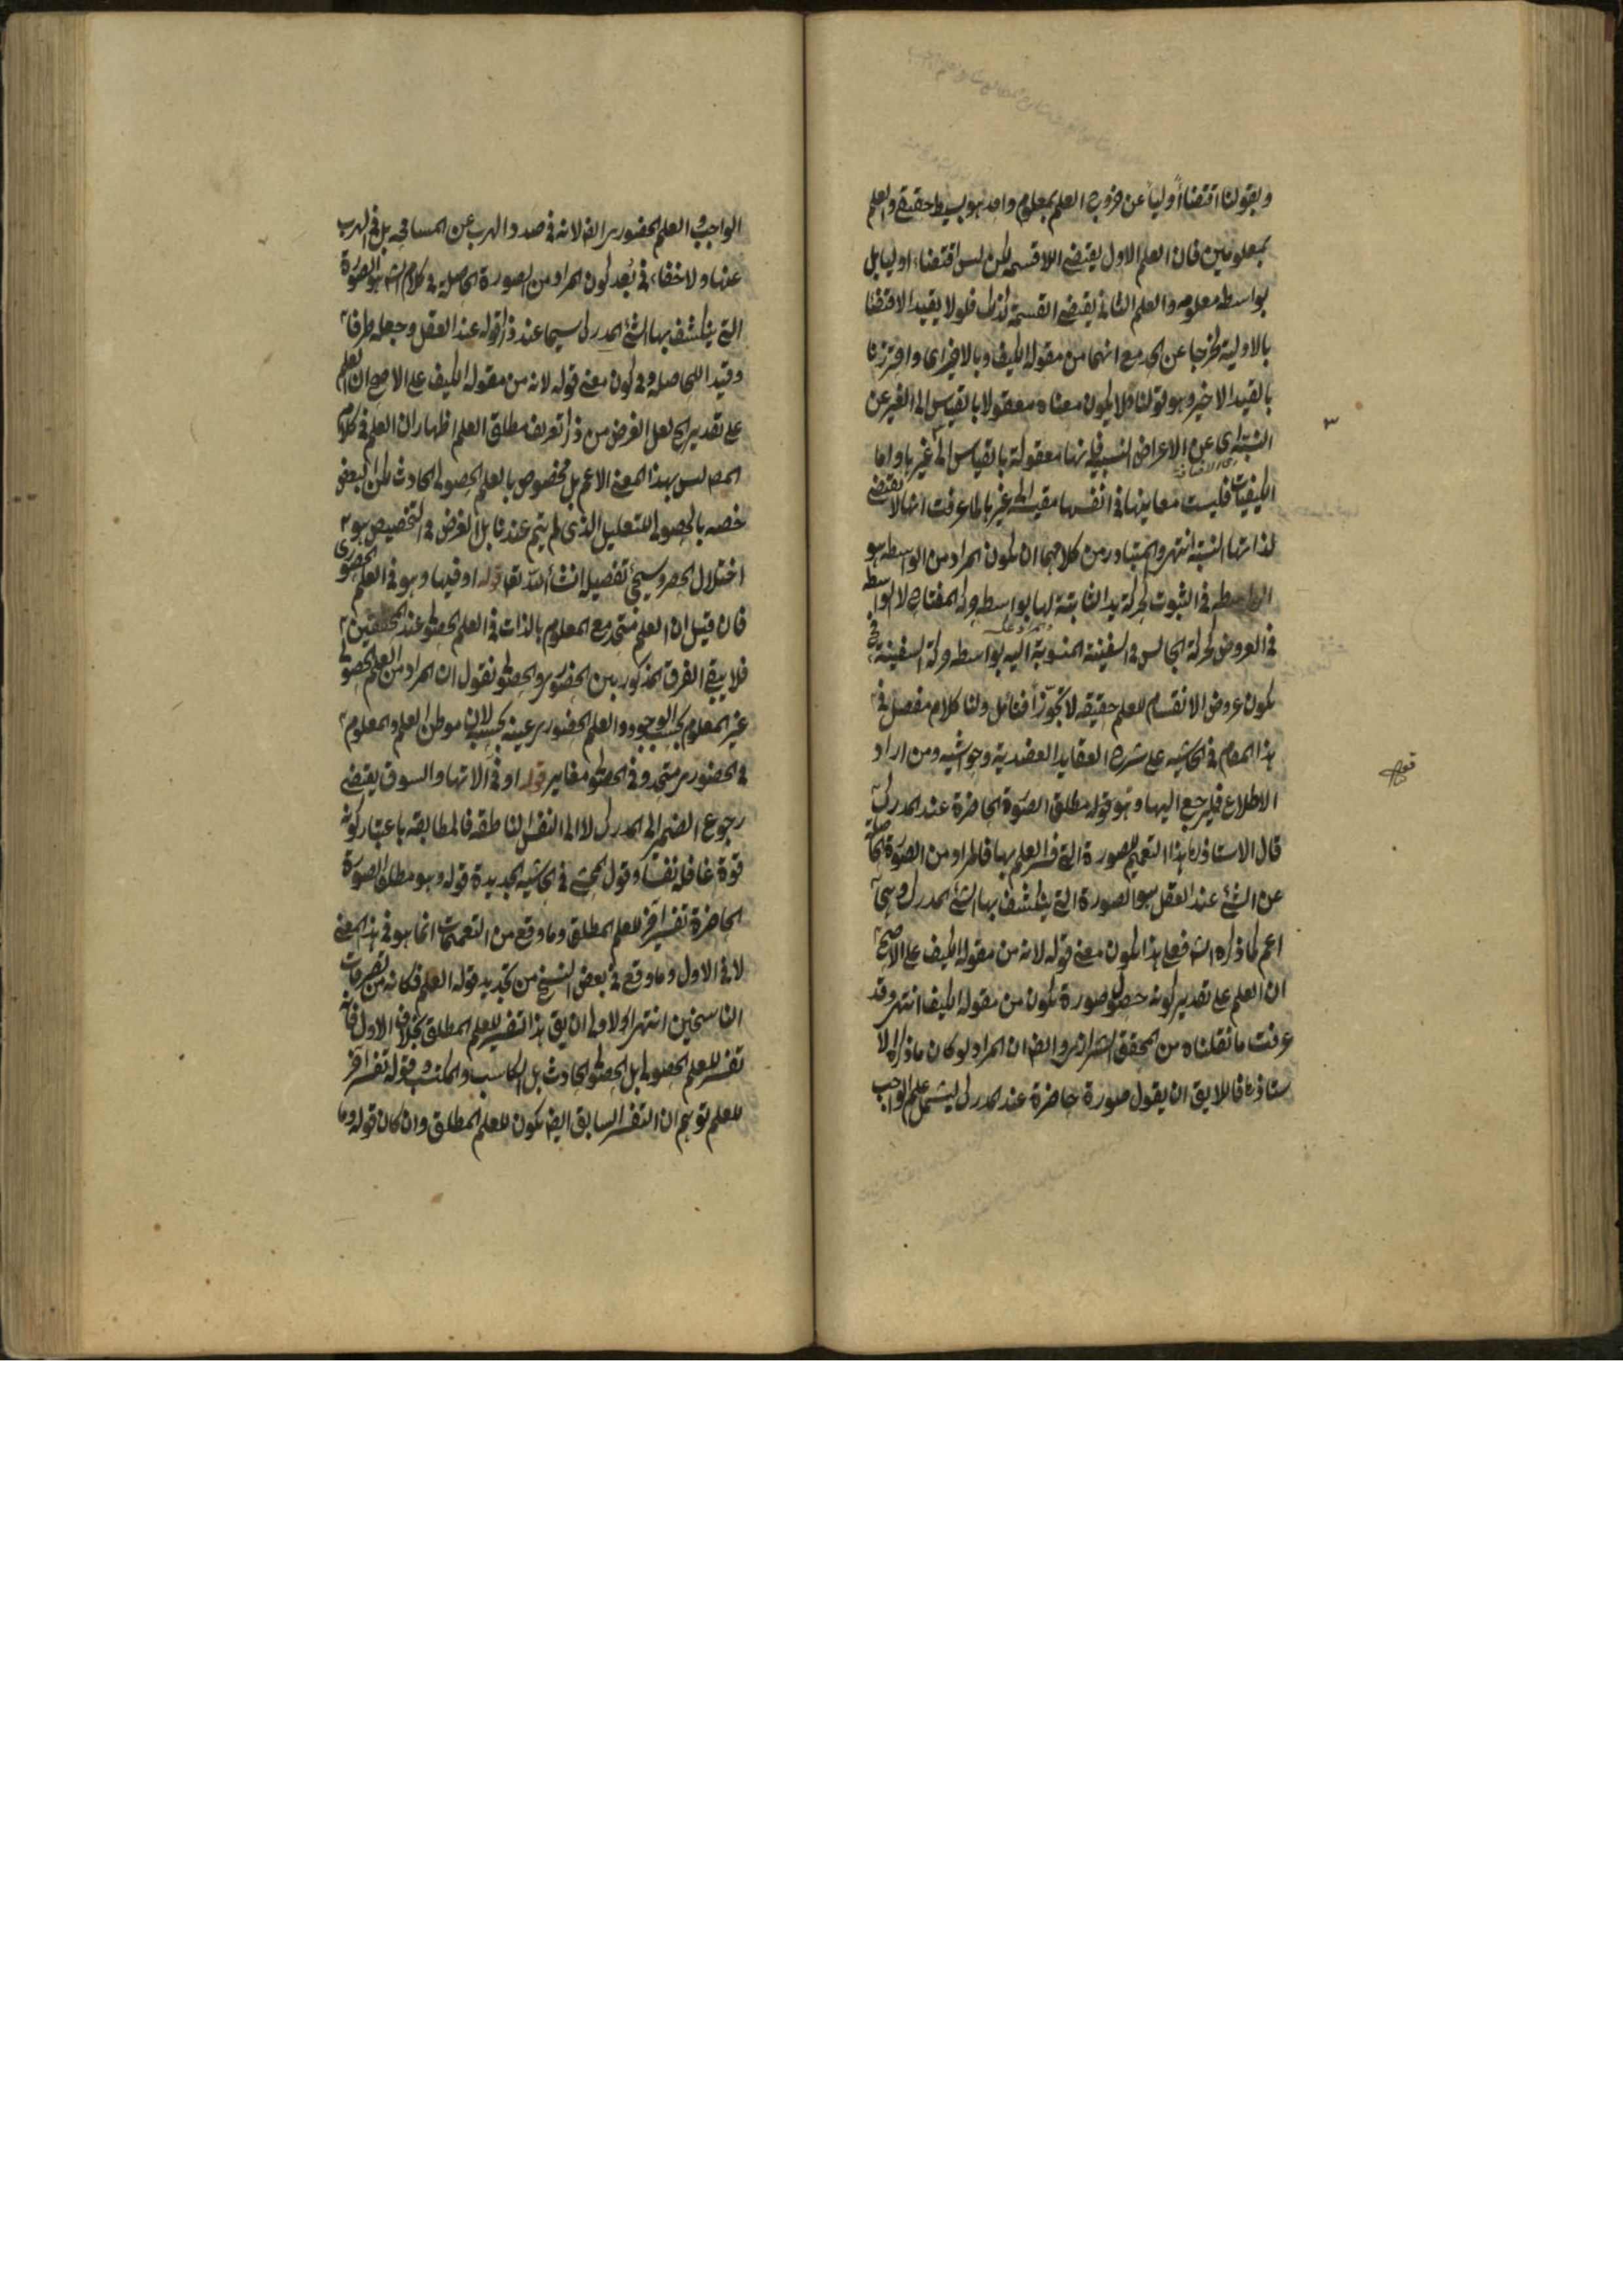 وبقولنا اقتضاءً أولياً عن خروج العلم بمعلوم واحد هو بسيط حقيقي والعلم
بمعلومين فان العلم الاول يقتضي اللاقسمة لكن ليس اقتضاء اوليا بل
بواسطه معلومه والعلم الثاني يقتضي القسمة كذلك فلولا يقيد الاقتضا
بالاولية لخرجا عن الحد مع انهما من مقولة الكيف وبالاخير اى واحترزنا
بالقيد الاخير وهو قولنا ولا يكون معناه معقولا بالقياس الى الغير عن
النسبة اى عن الاعراض النسبية فانها معقولة بالقياس الى غيرها واما
الكيفيات فليست معانيها في انفسها مقيسة الى غيرها لما عرفت انها لا تقتضي
لذاتها النسبة انتهى والمتبادر من كلامهما ان يكون المراد من الواسطه هو
الواسطه في الثبوت كحركة يد الثابتة لها بواسطه حركة المفتاح لا الواسطه
في العروض كحركة الجالس في السفينة المنسوبة اليه بواسطه حركة السفينة
يكون عروض الانقسام للعلم حقيقة لا تجوّزاً فتأمل ولنا كلام مفصل في
هذا المقام في الحاشيه على شرح العقايد العضدية وحواشيه ومن اراد
الاطلاع فليرجع اليها وهو قوله مطلق الصورة الحاضرة عند المدرك
قال الاستاذ هذا التعميم للصورة التي فسر العلم بها فالمراد من الصورة الحاصلة
عن الشئ عند العقل هو الصورة التي ينكشف بها الشئ المدرك وهي
اعم لما ذكره الش فعلى هذا يكون معنى قوله لانه من مقولة الكيف على الاصح
ان العلم على تقدير كونه حصول صورة يكون من مقولة الكيف انتهى وقد
عرفت ما نقلناه من المحقق الشرازى وايضا ان المراد لو كان ما ذكره الا
ستاذ فاللايق ان يقول صورة حاضرة عند المدرك ليشمل علم الواجب
الواجب والعلم الحضورى ايض لانه في صدد الهرب عن المسامحة بل في الهرب
عنها ولا خفاء في بُعد كون المراد من الصورة الحاصلة في كلام الش هو الصورة
التي ينكشف بها الشئ المدرك سيما عند ذكر قوله عند العقل وجعله ظرفا
وقيد اللحاصله وفي كون معنى قوله لانه من مقولة الكيف على الاصح ان العلم
على تقدير الخ لعل الغرض من ذكر تعريف مطلق العلم اظهار ان العلم في كلام
المص ليس بهذا المعنى الاعم بل مخصوص بالعلم الحصولى الحادث لكن البعض
خصه بالحصولى للتعليل الذى لم يتم عندنا بل الغرض في التخصيص هو
اختلال الحصر وسيجئ تفصيله انشأ الله تعا قوله او فيها وهو في العلم الحضورى
فان قيل ان العلم متحد مع المعلوم بالذات في العلم الحصولى عند المحققين
فلا يبقى الفرق المذكور بين الحضورى والحصولى نقول ان المراد من العلم الحصولى
غير المعلوم بحسب الوجود والعلم الحضورى عينه بحسبه لان موطن العلم والمعلوم
في الحضورى متحد وفي الحصولى مغاير قوله او في الاتها والسوق يقتضي
رجوع الضمير الى المدرك لا الى النفس الناطقه فالمطابقه باعتبار كونه
قوة عاقلة نفسا وقول المحشى في الحاشيه الجديدة قوله وهو مطلق الصورة
الحاضرة تفسير آخر للعلم المطلق وما وقع من التعميمات انما هو في هذا المعنى
لا في الاول وما وقع في بعض النسخ من تجديد قوله العلم فكانه من تصرفات
الناسخين انتهى الاولى ان يق هذا تفسير للعلم المطلق بخلاف الاول فانه
تفسير للعلم الحصولى بل الحصولى الحادث بل الكاسب والمكتسب وقوله تفسر آخر
للعلم توهم ان التفسر السابق ايض يكون للعلم المطلق وان كان قوله وما